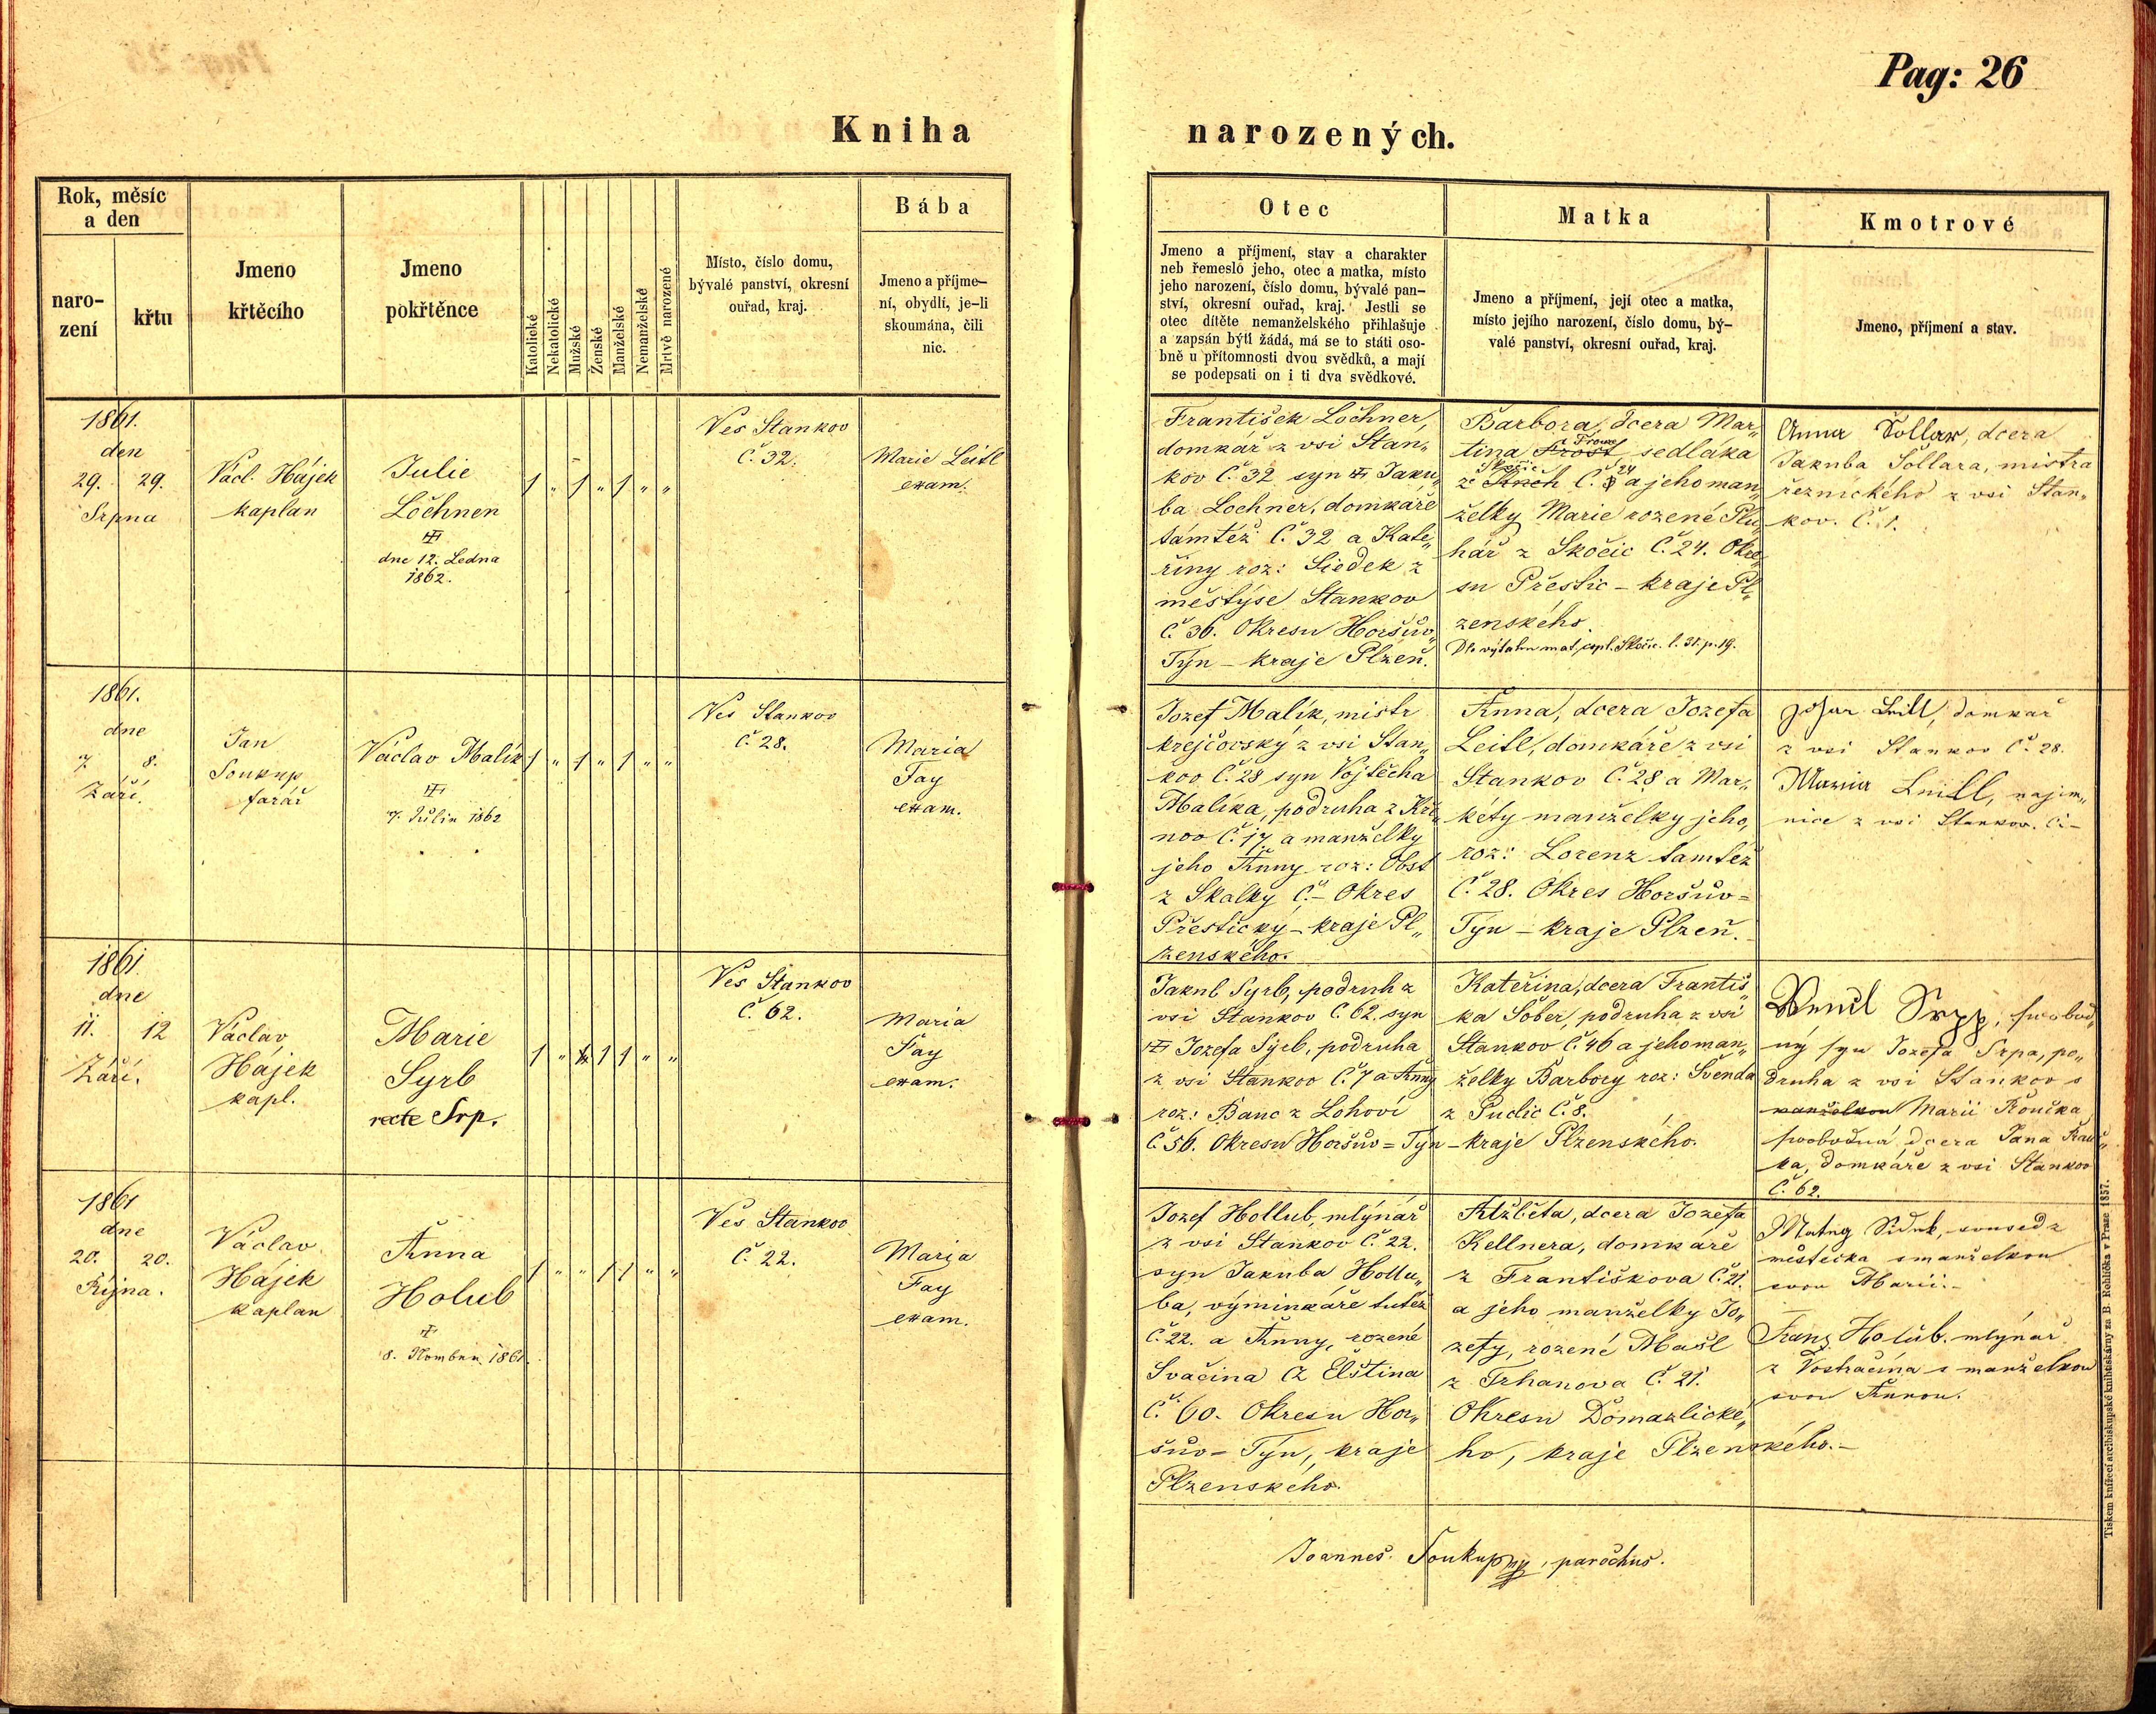 Pag: 26
Kniha narozených.
Rok, měsíc
a den
naro-
zení
křtu
Jmeno
křtěcího
Jmeno
pokřtěnce
Katolické
Nekatolické
Mužské
Ženské
Manželské
Nemanželské
Mrtvě narozené
Místo, číslo domu,
bývalé panství, okresní
ouřad, kraj.
Bába
Jmeno a příjme-
ní, obydlí, je-li
skoumána, čili
nic.
Otec
Jmeno a příjmení, stav a charakter
neb řemeslo jeho, otec a matka, místo
jeho narození, číslo domu, bývalé pan-
ství, okresní ouřad, kraj. Jestli se
otec dítěte nemanželského přihlašuje
a zapsán býti žádá, má se to státi oso-
bně u přítomnosti dvou svědků, a mají
se podepsati on i ti dva svědkové.
Matka
Jmeno a příjmení, její otec a matka,
místo jejího narození, číslo domu, bý-
valé panství, okresní ouřad, kraj.
Kmotrové
Jmeno, příjmení a stav.
1861.
den
29. 29.
Srpna
Václ. Hájek
kaplan
Julie
Lochner
dne 12. Ledna
1862.
1 „ 1 „ 1 „ „
Ves Stankov
Č. 32.
Marie Leitl
exam.
František Lochner,
domkář z vsi Stan„
kov Č. 32 syn Jaku„
ba Lochner, domkáře
tamtéž Č. 32 a Kate„
řiny roz: Siedek z
městýse Stankov
Č. 36. Okresu Horšův„
Týn – kraje Plzeň.
Barbora, dcera Mar„
tina Frost sedláka
Č. 24 a jeho man„
želky Marie rozené Plu„
hář z Skočic Č. 24. Okre„
su Přestic – kraje Pl„
zenského.
Dle výtahu mat. Skočic. l. 31. p. 19.
Anna Šollar, dcera
Jakuba Šollara, mistra
řeznického z vsi Stan„
kov. Č. 1.
1861.
dne
7. 8.
Září.
Jan
Soukup
farář
Václav Malík
7. Julia 1862
1 „ 1 „ 1 „ „
Ves Stankov
Č. 28.
Maria
Fay
exam.
Jozef Malík, mistr
krejčovský z vsi Stan„
kov Č. 28 syn Vojtěcha
Malíka, podruha z Kře„
nov Č. 17 a manželky
jeho Anny roz: Obst
z Skalky Č. – Okres
Přestický – kraje Pl„
zenského.
Anna, dcera Jozefa
Leitl, domkáře z vsi
Stankov Č. 28 a Mar„
kéty manželky jeho,
roz: Lorenz tamtéž
Č. 28. Okres Horšův=
Týn – kraje Plzeň.
Leitl, domkář
z vsi Stankov Č. 28.
Maria Leitl, najem„
nice z vsi Stankov. Č –
1861
dne
11. 12
Září.
Václav
Hájek
kapl.
Marie
Syrb
recte Srp.
1 „ 1 1 „ „
Ves Stankov
Č. 62.
Maria
Fay
exam.
Jakub Syrb, podruh z
vsi Stankov Č. 62. syn
Jozefa Syrb, podruha
z vsi Stankov Č. 7 a Anny
roz: Banc z Lohoví
Č. 56. Okresu Horšův= Týn – kraje Plzenského.
Kateřina, dcera Františ„
ka Šober, podruha z vsi
Stankov Č. 46 a jeho man„
želky Barbory roz: Švenda
z Puclic Č. 8.
Srpp, svobod„
ný syn Jozefa Srpa, po„
druha z vsi Stankov s
manželkou Marií Rouček
svobodná dcera Jana Rou„
ka, domkáře z vsi Stankov
Č. 62.
1861
dne
20. 20.
Října.
Václav
Hájek
kaplan
Anna
Holub
8. Novembru 1861.
1 „ „ 1 1 „ „
Ves Stankov
Č. 22.
Maria
Fay
exam.
Jozef Hollub, mlýnář
z vsi Stankov Č. 22.
syn Jakuba Hollu„
ba, výminkáře tutéž
Č. 22. a Anny, rozené
Svačina z Elština
Č. 60. Okresu Hor„
šův= Týn, kraje
Plzenského.
Alžběta, dcera Jozefa
Kellnera, domkáře
z Františkova Č. 21.
a jeho manželky Jo„
zefy, rozené Mašl
z Trhanova Č. 21.
Okresu Domazlické„
ho, kraje Plzenského. –
Matěg Siduk, soused z
městečka s manželkou
svou Marií. –
Franz Holub. mlýnář
z Vostračína s manželkou
svou Annou.
Joannes Soukup, parochus.
Tiskem knížecí arcibiskupské knihtiskárny za B. Rohlíčka v Praze 1857.